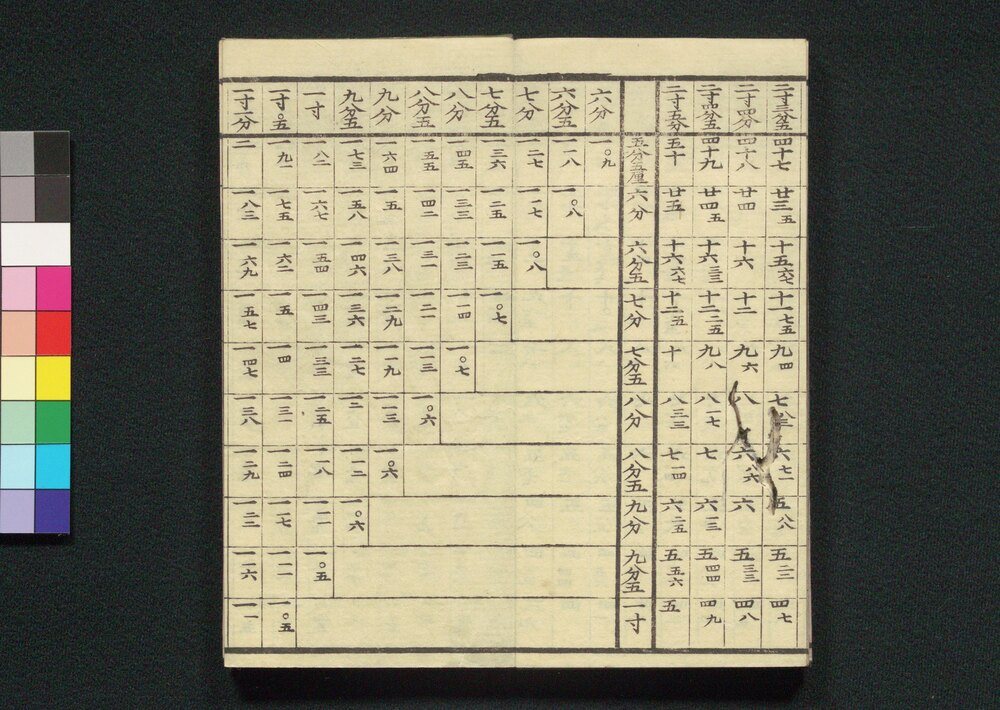 二寸三分五 四十七 廿三五 十五六七 十一七五 九四 七八三 六七一 五八八 五二二 四七
二寸四分 四十八 廿四 十六 十二 九六 八 六八六 六 五三三 四八
二寸四分五 四十九 廿四五 十六三三 十二二五 九八 八一七 七 六一三 五四四 四九
二寸五分 五十 廿五 十六六七 十二五 十 八三三 七一四 六二五 五五六 五
五分五厘 六分 六分五 七分 七分五 八分 八分五 九分 九分五 一寸
六分 一〇九
六分五 一一八 一〇八
七分 一二七 一一七 一〇八
七分五 一三六 一二五 一一五 一〇七
八分 一四五 一三三 一二三 一一四 一〇七
八分五 一五五 一四二 一三一 一二一 一一三 一〇六
九分 一六四 一五 一三八 一二九 一一九 一一三 一〇六
九分五 一七三 一五八 一四六 一三六 一二七 一二 一一二 一〇六
一寸 一八二 一六七 一五四 一四三 一三三 一二五 一一八 一一一 一〇五
一寸〇五 一九一 一七五 一六二 一五 一四 一三一 一二四 一一七 一一一 一〇五
一寸一分 二 一八三 一六九 一五七 一四七 一三八 一二九 一二二 一一六 一一